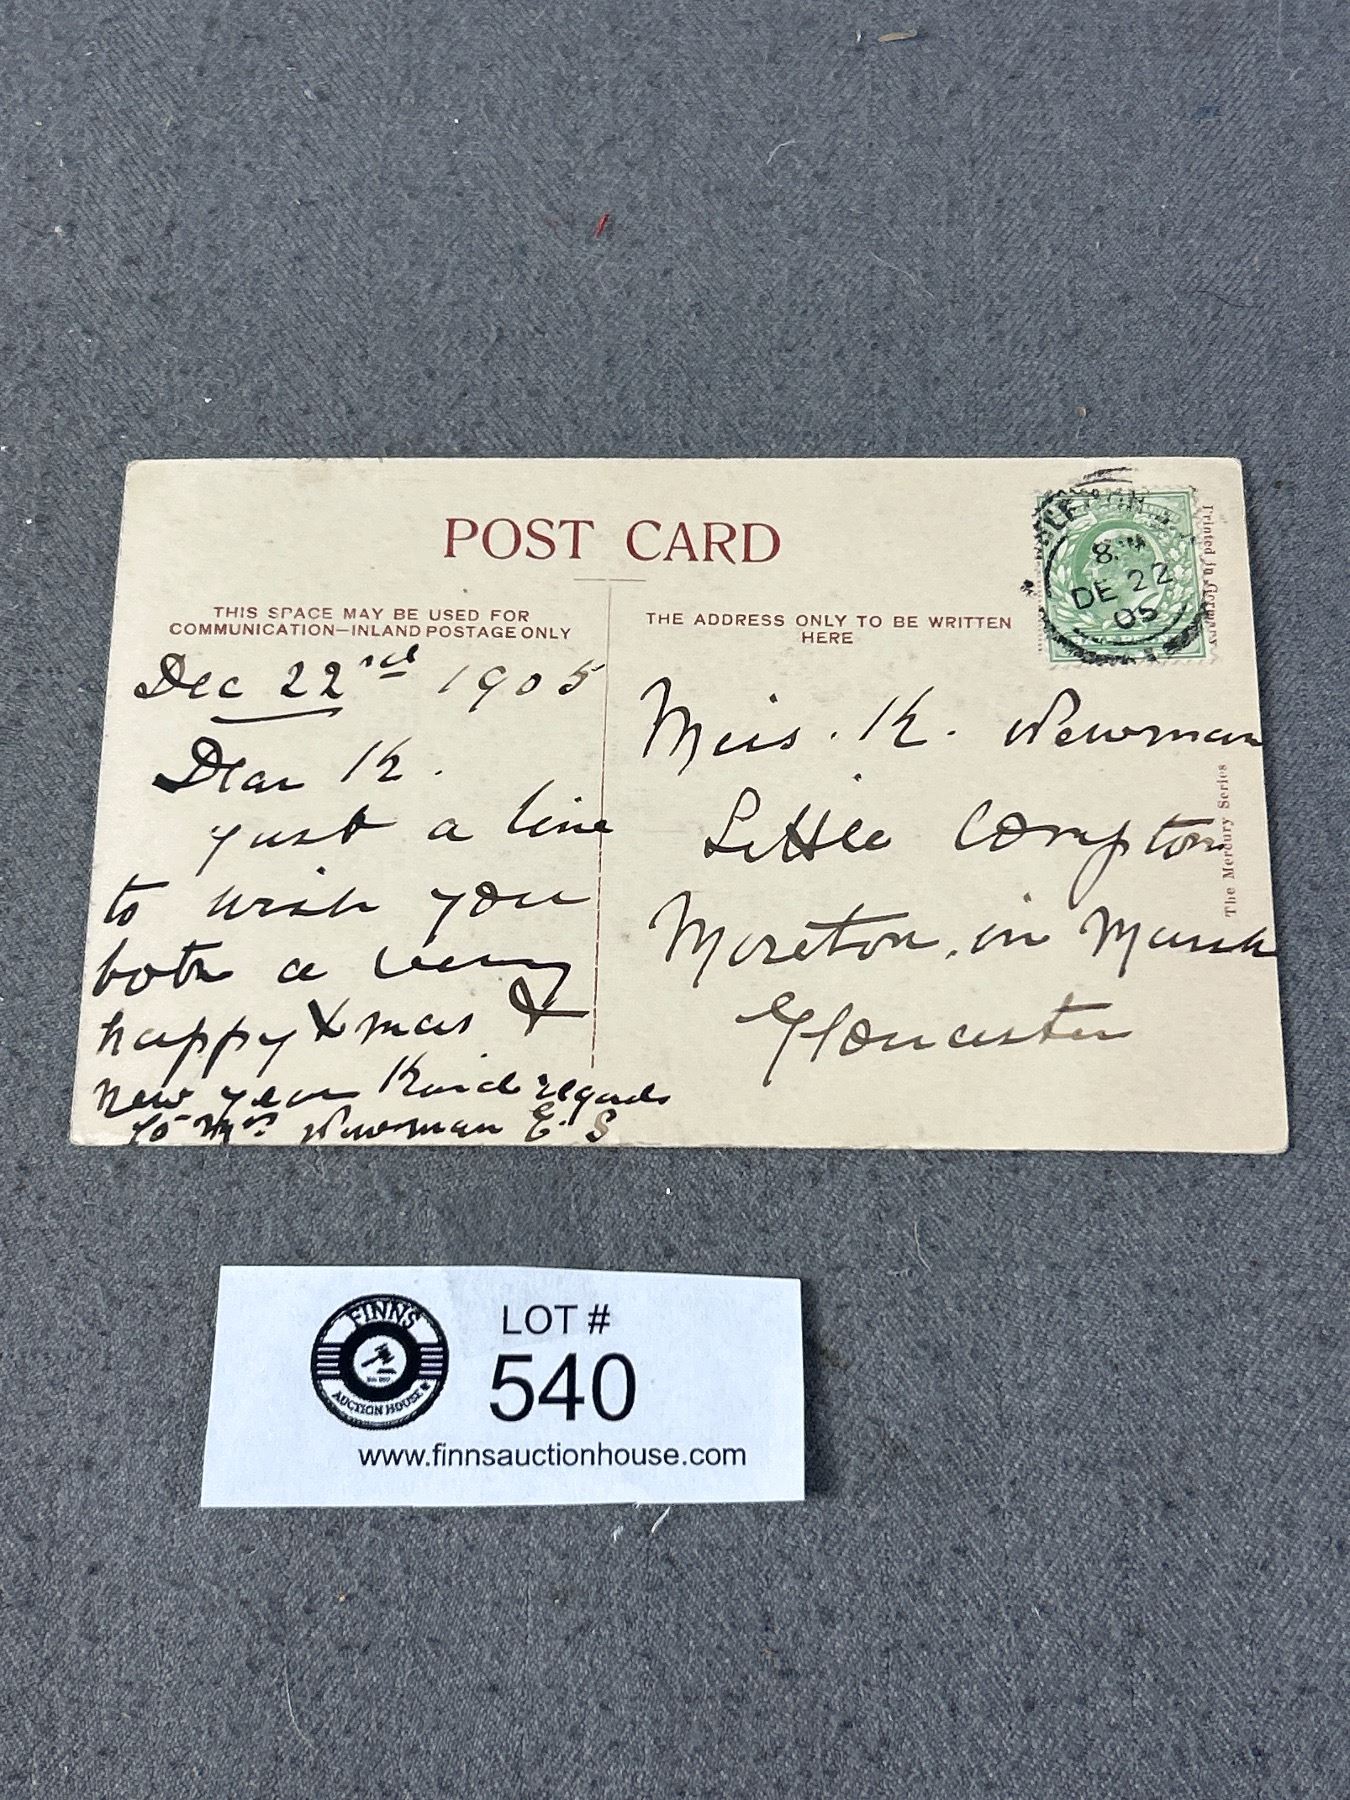 POST CARD
THIS SPACE MAY BE USED FOR
COMMUNICATION—INLAND POSTAGE ONLY
Dec 22nd 1905
Dear K.
Just a line
to wish you
both a very
happy Xmas &
New year Kind regards
to Mrs Newman E. S
THE ADDRESS ONLY TO BE WRITTEN
HERE
Miss. K. Newman
Little Compton
Moreton. in Marsh
Gloucester
8.
DE 22
05
Printed in Germany
The Mercury Series
FINNS
AUCTION HOUSE
LOT #
540
www.finnsauctionhouse.com